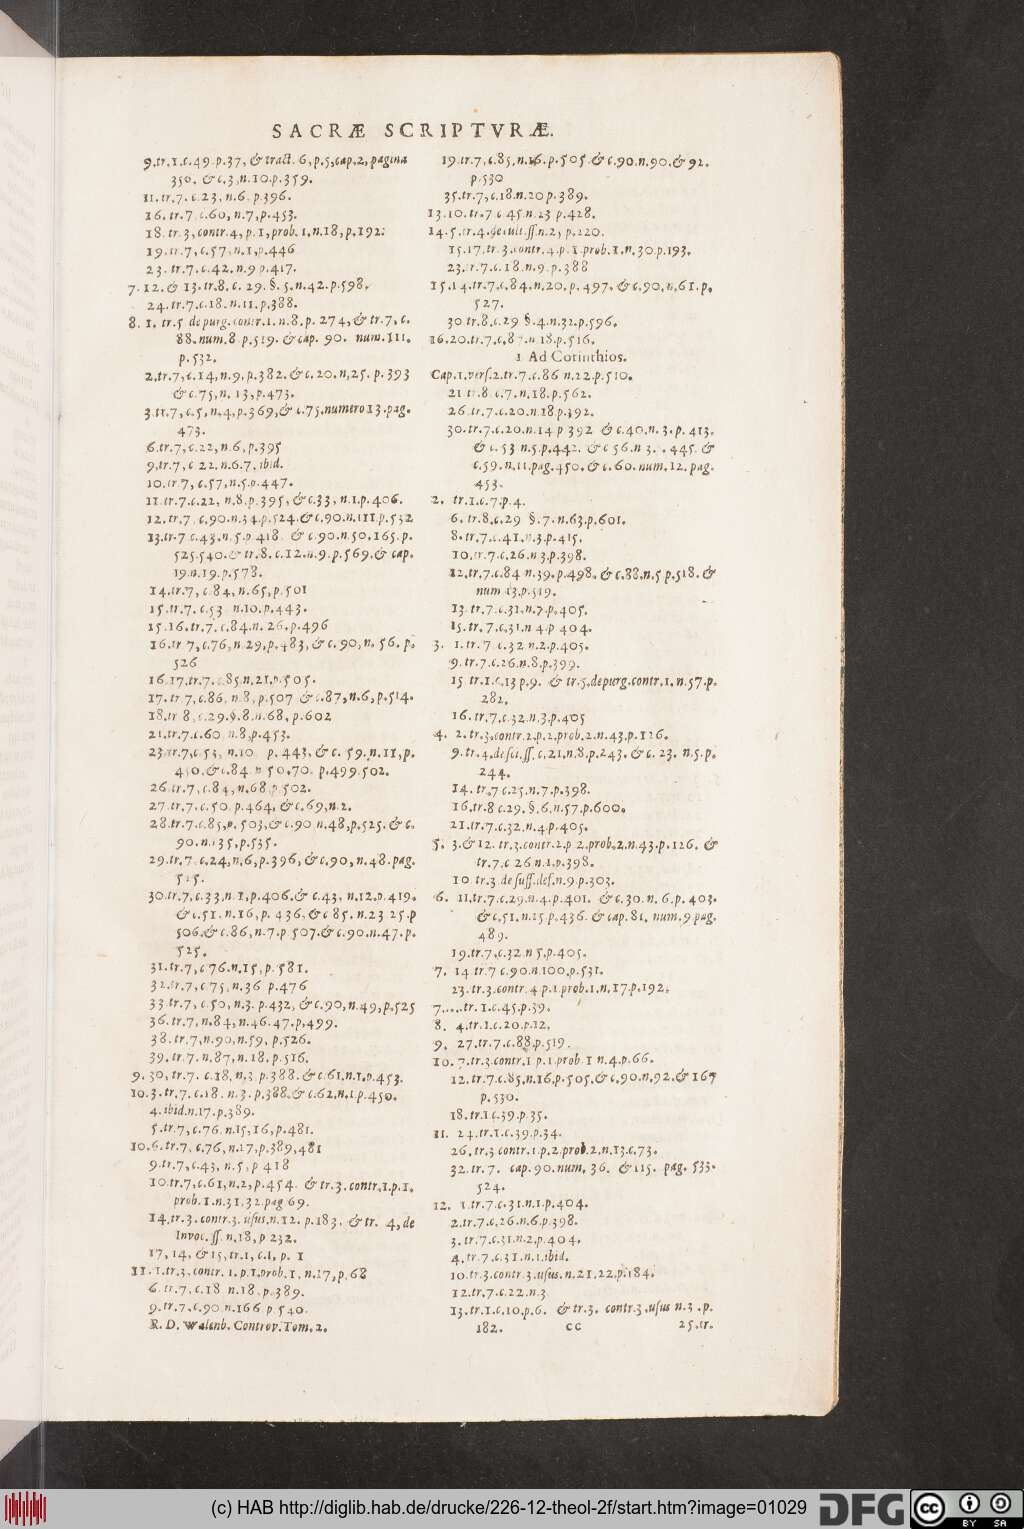 SACRÆ SCRIPTVRÆ.
9.tr.1.c.49.p.37, & tract. 6,p.5,cap,2, pagina
350. & c.3.n.10.p.359.
11.tr.7. c.23, n.6. p.396.
16. tr.7.c.60, n.7,p.453.
18. tr.3, contr.4, p.1, prob. 1,n.18, p.192:
19.tr.7, c.57, n.1,p.446
23. tr.7.c.42.n.9 p.417.
7.12.& 13.tr.8.c. 29. §. 5.n.42.p.598.
24.tr.7.c.18.n.11.p.388.
8. 1. tr.5 de purg.contr.1.n.8.p. 274,& tr.7, c.
88.num.8 p.519. & cap. 90. num.111.
p.532.
2.tr.7,c.14,n.9,p.382.& c.20.n,25.p.393
& c.75,n. 13,p.473.
3.tr.7,c.5,n.4,p.369,& c.75,numero 13.pag.
473.
6.tr.7,c.22,n.6,p.395
9.tr.7,c 22.n.6.7, ibid.
10.tr 7, c.57,n.5.p.447.
11.tr.7.c.22, n.8.p.395, & c.33, n.1.p.406.
12.tr.7.c.90.n.34.p.524.& c.90.n.111.p.532
13.tr.7 c.43.n.5.p 418. & c.90.n.50.165.p.
525.540.& tr.8.c.12.n.9.p.569.& cap.
19.n.19.p.578.
14.tr.7, c.84, n.65,p.501
15.tr.7. c.53 n.10.p.443.
15.16.tr.7. c.84.n. 26.p.496
16.tr 7,c.76,n.29,p.483,& c.90,n. 56. p.
526
16.17.tr.7. c.85.n.21.p.505.
17. tr 7,c.86, n.8,p.507 & c.87,n.6,p.514.
18.tr 8, c.29.§.8.n.68, p.602
21.tr.7.c.60 n.8,p.453.
23.tr.7,c.53, n.10 p.443, & c. 59.n.11,p.
450.& c.84 n 50.70. p.499.502.
26.tr.7, c.84,n.68 p.502.
27.tr.7,c.50.p.464,& c.69,n.2.
28.tr.7.c.85,p.503,& c.90 n.48,p.525. & c.
90.n.135,p.535.
29.tr.7 c.24,n,6,p.396,& c.90,n.48.pag.
525.
30.tr.7,c.33.n.1,p.406.& c.43, n.12.p.419.
& c.51.n.16,p. 436,& c 85.n.23 25.p
506.& c.86,n.7.p.507.& c.90.n.47.p.
525.
31.tr.7,c.76.n.15,p.581.
32.tr.7,c 75,n.36 p.476
33.tr.7, c.50,n.3.p.432, & c.90,n.49,p.525
36.tr.7,n.84,n.46.47.p,499.
38.tr.7,n.90,n.59, p.526.
39.tr.7.n.87,n.18.p.516.
9.30,tr.7. c.18,n.3.p.388.& c.61.n.1.p.453.
10.3.tr.7,c.18.n.3.p.388.& c.62.n.1.p.450.
4.ibid.n.17.p.389.
5.tr.7,c.76.n.15,16,p.481.
10.6.tr.7, c.76,n.17,p.389,481
9.tr.7,c.43,n.5,p 418
10.tr.7,c.61,n.2,p.454. & tr.3.contr,1.p.1.
prob.1.n.31.32.pag 69.
14.tr.3.contr.3.usus.n.12.p.183. & tr. 4,de
Invoc.ss.n.18,p 232.
17, 14, & 15,tr.1, c.1, p. 1
11.1.tr.3,contr. 1.p.1.prob.1,n.17,p.68
6.tr.7,c.18 n.18.p.389.
9.tr.7.c.90.n.166 p 540.
R.D. Walenb. Controv.Tom.2.
19.tr.7,c.85,n.16.p.505.& c.90.n.90.& 92.
p.530
35.tr.7,c.18.n.20 p.389.
13.10.tr.7 c 45.n.23 p.428.
14.5.tr.4.de cult.ss.n.2, p.220.
15.17.tr.3.contr.4.p.1.prob.1.n.30.p.193.
23.tr.7.c.18.n.9.p.388
15.14.tr.7.c.84.n.20.p.497. & c.90.n.61.p.
527.
30 tr.8.c.29 §.4.n.32.p.596.
16.20.tr.7.c.87.n.18.p.516.
1 Ad Corinthios.
Cap.1.vers.2.tr.7.c.86 n.22.p.510.
21.tr.8.c.7.n.18.p.562.
26.tr.7.c.20.n.18 p.392.
30.tr.7.c.20.n.14 p 392 & c.40.n.3.p. 413.
& c.53 n.5.p.442. & c 56.n 3. . 445. &
c.59.n.11.pag.450.& c.60.num.12.pag.
453.
2. tr.1.c.7.p.4.
6.tr.8.c.29 §.7.n.63.p.601.
8.tr.7.c.41.n.3.p.415.
10.tr.7.c.26.n 3.p.398.
12.tr.7.c.84 n.39.p.498. & c.88.n.5 p.518. &
num 13.p.519.
13.tr.7.c.31.n.7.p.405.
15.tr.7,c.31.n 4.p 404.
3. 1.tr.7.c.32 n.2.p.405.
9.tr.7.c.26.n.8.p.399.
15 tr.1.c.13 p.9. & tr.5.de purg.contr.1.n.57.p.
282.
16.tr.7.c.32.n.3.p.405
4. 2.tr.3.contr.2.p.2.prob.2.n.43.p.126.
9.tr.4.de sct.ss.c,21,n.8,p.243. & c.23. n.5.p.
244.
14.tr.7 c.25.n.7.p.398.
16.tr.8 c.29.§.6.n.57.p.600.
21.tr.7.c.32.n.4.p.405.
5. 3.& 12. tr.3.contr.2.p 2.prob.2.n.43.p.126. &
tr.7.c 26 n.1.p.398.
10 tr.3 de suff.def.n.9 p.303.
6. 11.tr.7.c.29.n.4.p.401. & c.30.n.6.p.403.
& c.51.n.15 p.436. & cap.81. num.9 pag.
489.
19.tr.7.c.32.n 5.p.405.
7. 14 tr.7 c.90.n.100.p.531.
23.tr.3.contr.4 p.1.prob.1.n.17.p.192.
7.....tr.1.c.45.p.39.
8. 4.tr.1.c.20.p.12.
9. 27.tr.7.c.88.p.519.
10. 7.tr.3.contr.1.p.1.prob.1 n.4.p.66.
12.tr.7.c.85,n.16,p.505.& c.90.n.92.& 167
p.530.
18.tr.1 c.39.p.35.
11. 24.tr.1.c.39.p.34.
26.tr.3 contr.1.p.2.prob.2.n.13.c.73.
32.tr.7. cap.90.num. 36. & 115. pag. 533.
524.
12. 1.tr.7.c.31.n.1.p.404.
2.tr.7.c.26.n.6.p.398.
3.tr.7.c.31.n.2.p.404.
4.tr.7.c.31.n.1.ibid.
10.tr.3.contr.3.usus.n.21.22.p.184.
12.tr.7.c.22.n.3
13.tr.1.c.10.p.6. & tr.3. contr.3.usus n.3.p.
182. cc 25.tr.
(c) HAB http://diglib.hab.de/drucke/226-12-theol-2f/start.htm?image=01029
DFG
cc
BY SA